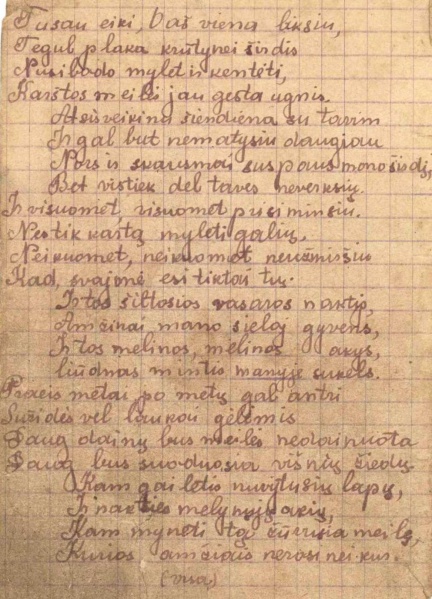 Tusau eiki, baš viena liksiu,
Tegul plaka krūtynei širdis
Nusibodo mylėt ir kentėti,
Karštos meilės jau gęsta ugnis.
Atsisveikinu šiendiena su tavim
Ir gal but nematysiu daugiau
Nors ir skausmai suspaus mono širdį,
Bet vistiek dėl tavęs neverksių.
Ir visuomet, visuomet prisiminsiu.
Nes tik kartą mylėti galių,
Neikuomet, neikuomet neužmiršiu
Kad, svajonė esi tiktai tų.
Ir tos šiltosios vasaros naktįs,
Amžinai mano sieloj gyvens,
Ir tos mėlinos, mėlinos akys,
liūdnas mintis manyje sukels.
Praeis metai, po metų gal antri
Sužidės vėl laukai gėlėmis
Daug dainų bus meilės nedainuota
Daug bus suvduosua višnių žiedų.
Kam gailėtis nuvytusių lapų,
Ir nakties mėlynųjų akių,
Kam mynėti tą žūvusia meilę,
Kurios amžiais nerasi neikur.